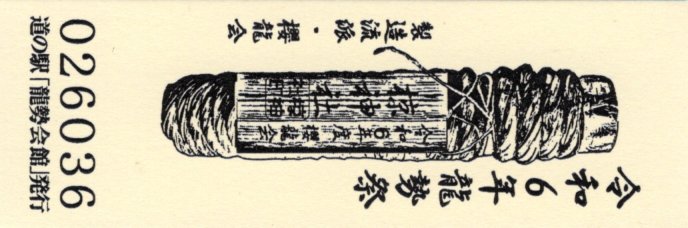 令和6年龍勢祭
令和6年度櫻龍会
製造流派・櫻龍会
026036
道の駅「龍勢会館」発行